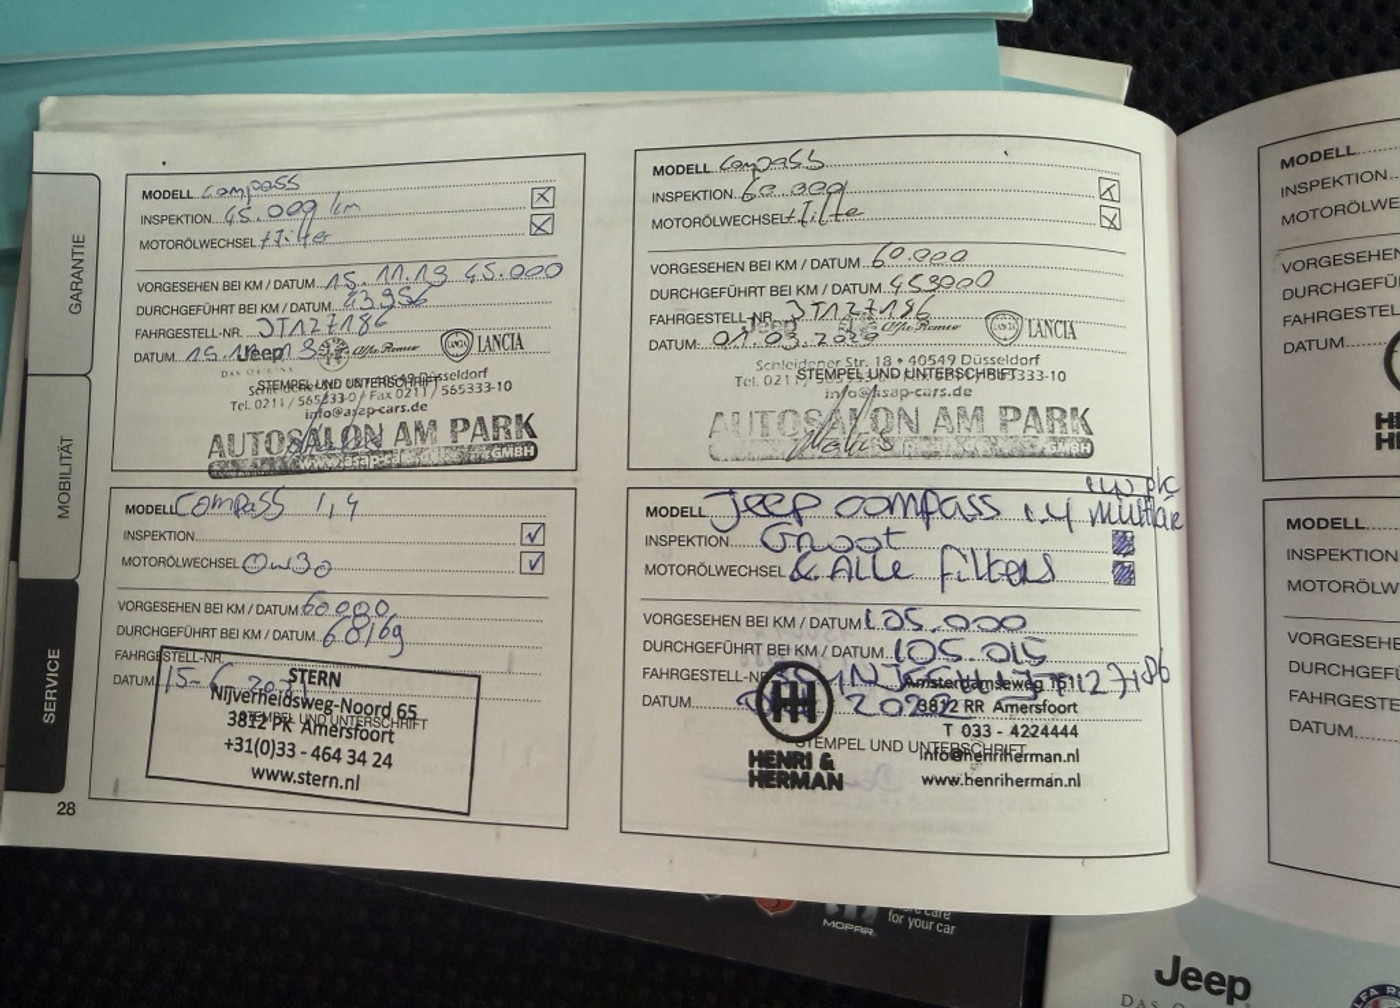 GARANTIE
MOBILITÄT
SERVICE
MODELL Compass
INSPEKTION 45.000 km
MOTORÖLWECHSEL + Filter
VORGESEHEN BEI KM / DATUM 15.11.19 45.000
DURCHGEFÜHRT BEI KM / DATUM 43956
FAHRGESTELL-NR. JT127186
DATUM
Jeep Alfa Romeo LANCIA
STEMPEL UND UNTERSCHRIFT
40549 Düsseldorf
Tel. 0211 / 565333-0 / Fax 0211 / 565333-10
info@asap-cars.de
AUTOSALON AM PARK
GMBH
MODELL Compass
INSPEKTION 60.000
MOTORÖLWECHSEL + Filter
VORGESEHEN BEI KM / DATUM 60.000
DURCHGEFÜHRT BEI KM / DATUM
FAHRGESTELL-NR. JT127186
Jeep Alfa Romeo LANCIA
DATUM: 01.03.2020
Schleidener Str. 18 • 40549 Düsseldorf
STEMPEL UND UNTERSCHRIFT
Tel. 0211 / 565333-10
info@asap-cars.de
AUTOSALON AM PARK
GMBH
MODELL Compass 1,4
INSPEKTION
MOTORÖLWECHSEL 0w30
VORGESEHEN BEI KM / DATUM 60000
DURCHGEFÜHRT BEI KM / DATUM 68169
FAHRGESTELL-NR.
DATUM 15-6
STERN
Nijverheidsweg-Noord 65
STEMPEL UND UNTERSCHRIFT
3812 PK Amersfoort
+31(0)33 - 464 34 24
www.stern.nl
MODELL Jeep compass 1.4 multiair
INSPEKTION Groot
MOTORÖLWECHSEL & Alle filters
VORGESEHEN BEI KM / DATUM 105.000
DURCHGEFÜHRT BEI KM / DATUM 105.015
FAHRGESTELL-NR
DATUM 2022
Amsterdamseweg
3812 RR Amersfoort
T 033 - 4224444
STEMPEL UND UNTERSCHRIFT
info@henriherman.nl
www.henriherman.nl
HENRI &
HERMAN
28
MODELL
INSPEKTION
MOTORÖLWE
VORGESEHEN
DURCHGEFÜ
FAHRGESTEL
DATUM
HE
HE
MODELL
INSPEKTION
MOTORÖLW
VORGESEHE
DURCHGEFÜ
FAHRGESTE
DATUM
for your car
MOPAR
Jeep